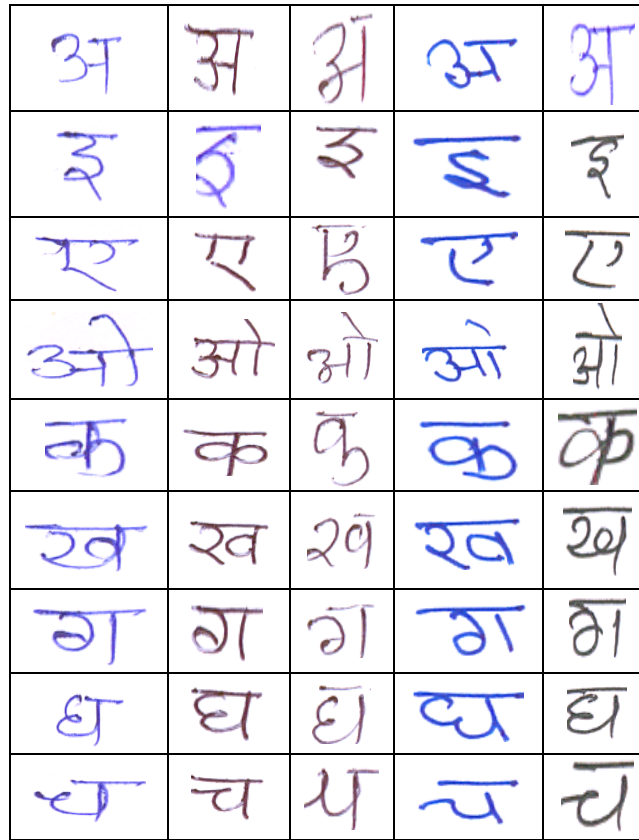 अ अ अ अ अ
इ इ इ इ इ
ए ए ए ए ए
ओ ओ ओ ओ ओ
क क क क क
ख ख ख ख ख
ग ग ग ग ग
घ घ घ घ घ
च च च च च